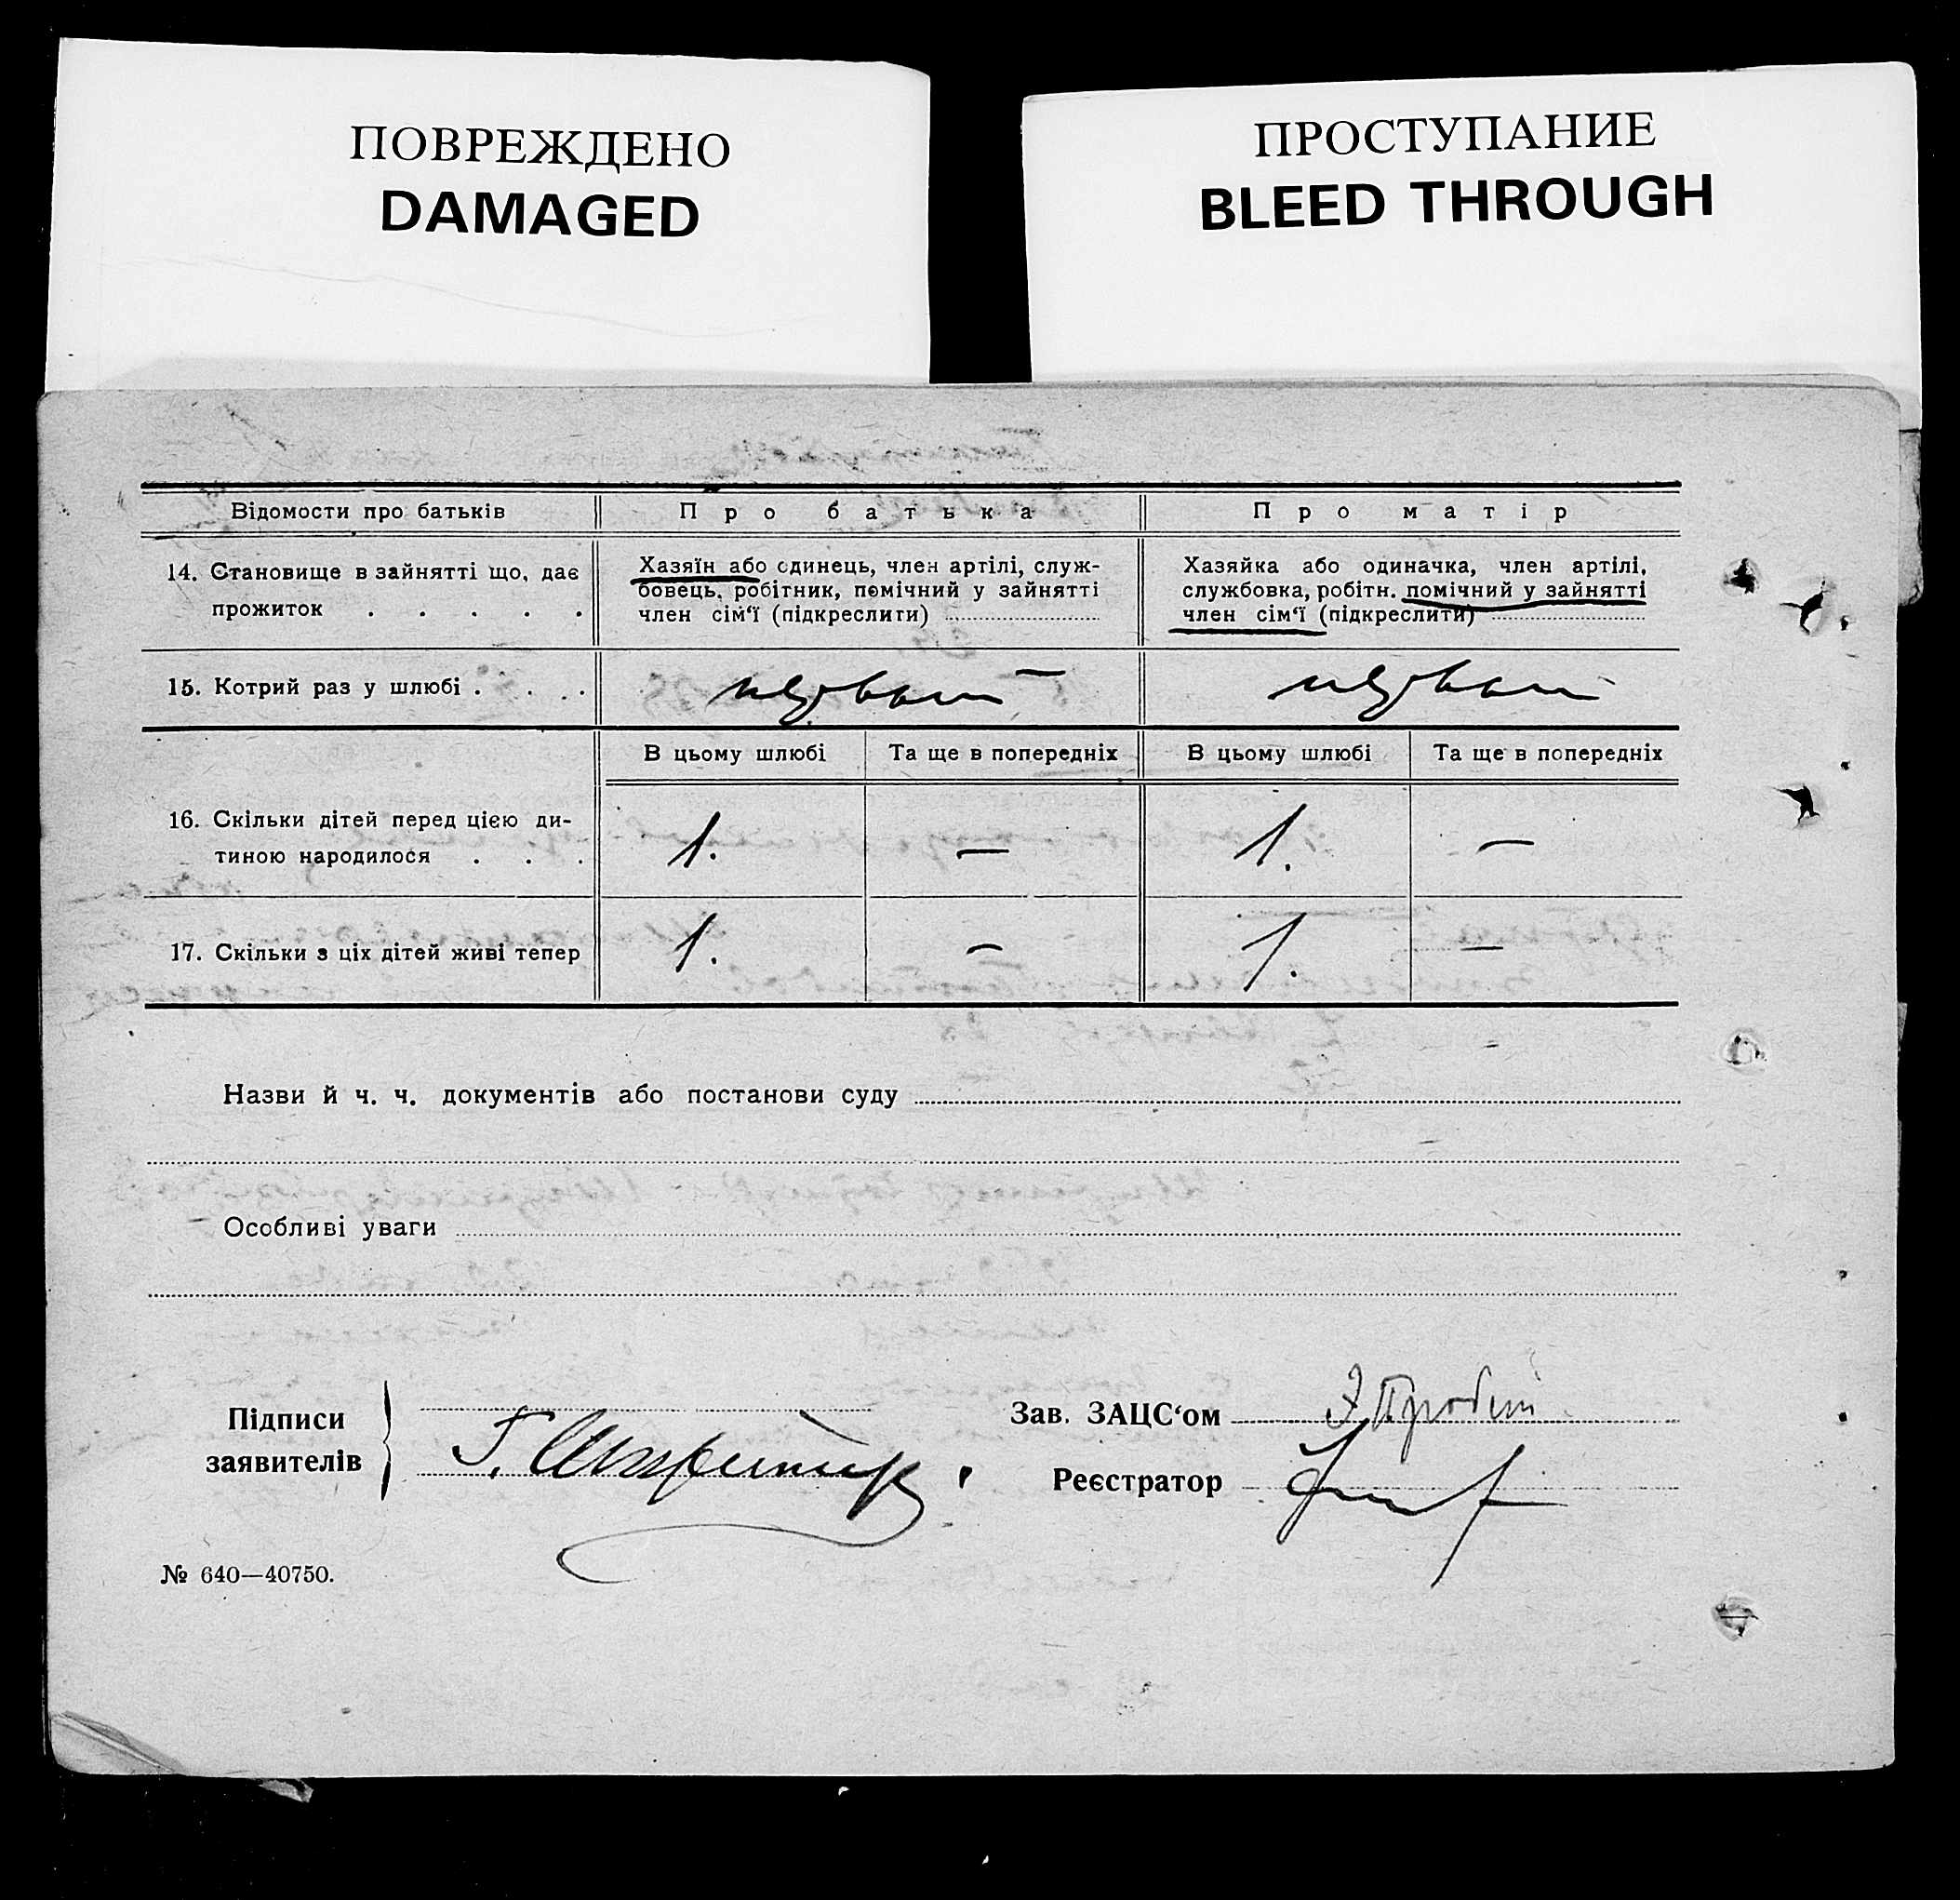 ПОВРЕЖДЕНО
DAMAGED
ПРОСТУПАНИЕ
BLEED THROUGH
Відомости про батьків
Про батька
Про матір
14. Становище в зайнятті що, дає
прожиток . . . . .
Хазяїн або одинець, член артілі, служ-
бовець, робітник, помічний у зайнятті
член сім‘ї (підкреслити)
Хазяйка або одиначка, член артілі,
службовка, робітн. помічний у зайнятті
член сім‘ї (підкреслити)
15. Котрий раз у шлюбі . . . .
В цьому шлюбі
Та ще в попередніх
В цьому шлюбі
Та ще в попередніх
16. Скільки дітей перед цією ди-
тиною народилося . . .
1.
—
1.
—
17. Скільки з ціх дітей живі тепер
1.
—
1.
—
Назви й ч. ч. документів або постанови суду
Особливі уваги
Підписи
заявителів
Зав. ЗАЦС‘ом
Реєстратор
№ 640—40750.